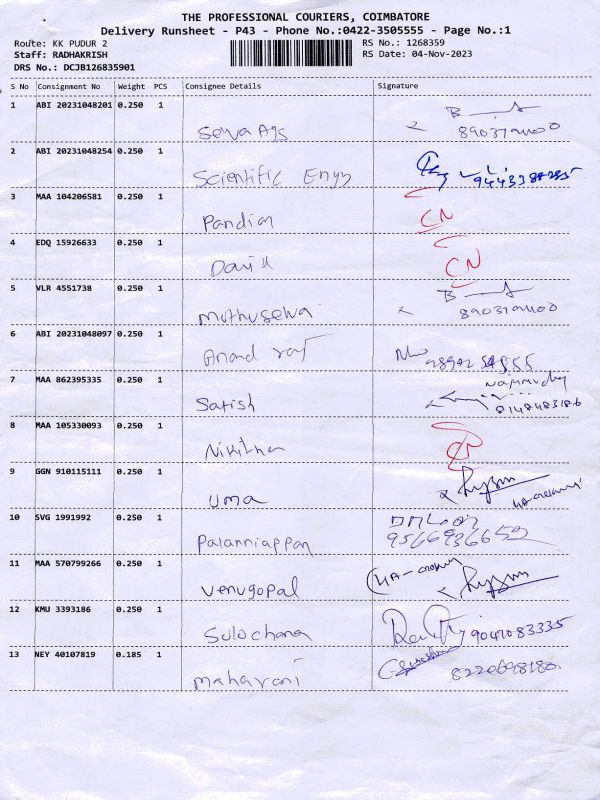 THE PROFESSIONAL COURIERS, COIMBATORE
Delivery Runsheet - P43 - Phone No.:0422-3505555 - Page No.:1
Route: KK PUDUR 2
RS No.: 1268359
Staff: RADHAKRISH
RS Date: 04-Nov-2023
DRS No.: DCJB126835901
S No Consignment No Weight PCS Consignee Details Signature
1 ABI 20231048201 0.250 1
Selva Ags
2 ABI 20231048254 0.250 1
Scientific Engg
3 MAA 104206581 0.250 1
Pandian CN
4 EDQ 15926633 0.250 1
David CN
5 VLR 4551738 0.250 1
Muthuselva
6 ABI 20231048097 0.250 1
Anand raj
7 MAA 862395335 0.250 1
Satish
8 MAA 105330093 0.250 1
Nikitha
9 GGN 910115111 0.250 1
Uma
10 SVG 1991992 0.250 1
Palanniappan 9566936659
11 MAA 570799266 0.250 1
Venugopal
12 KMU 3393186 0.250 1
Sulochana 9047083335
13 NEY 40107819 0.185 1
maharani 8220698180